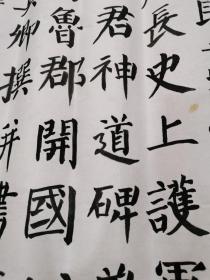 長史上護軍
君神道碑
魯郡開國
卿撰并書